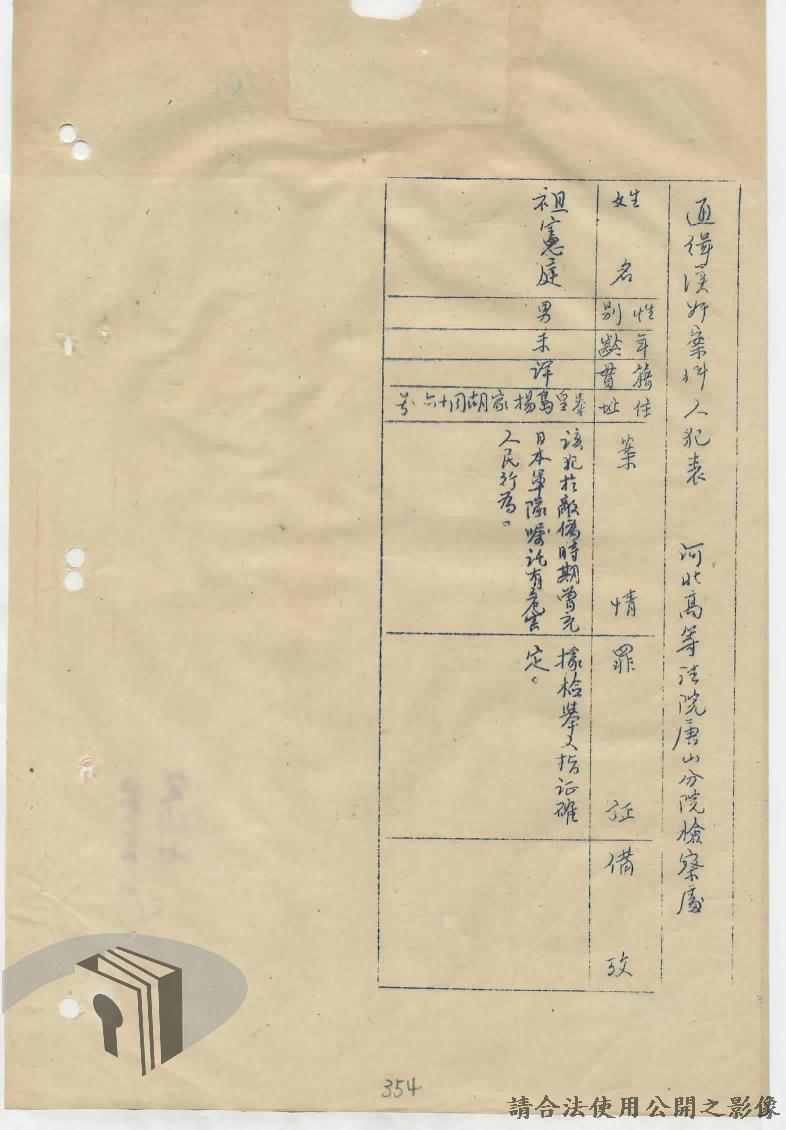 通緝漢奸案件人犯表　河北高等法院唐山分院檢察處
姓名
性別
年齡
籍貫
住址
案情
罪証
備攷
祖憲庭
男
未
詳
秦皇島楊家胡同十六号
該犯於敵偽時期曾充
日本軍隊嘱託有危害
人民行為。
據檢舉人指証確
定。
354
請合法使用公開之影像